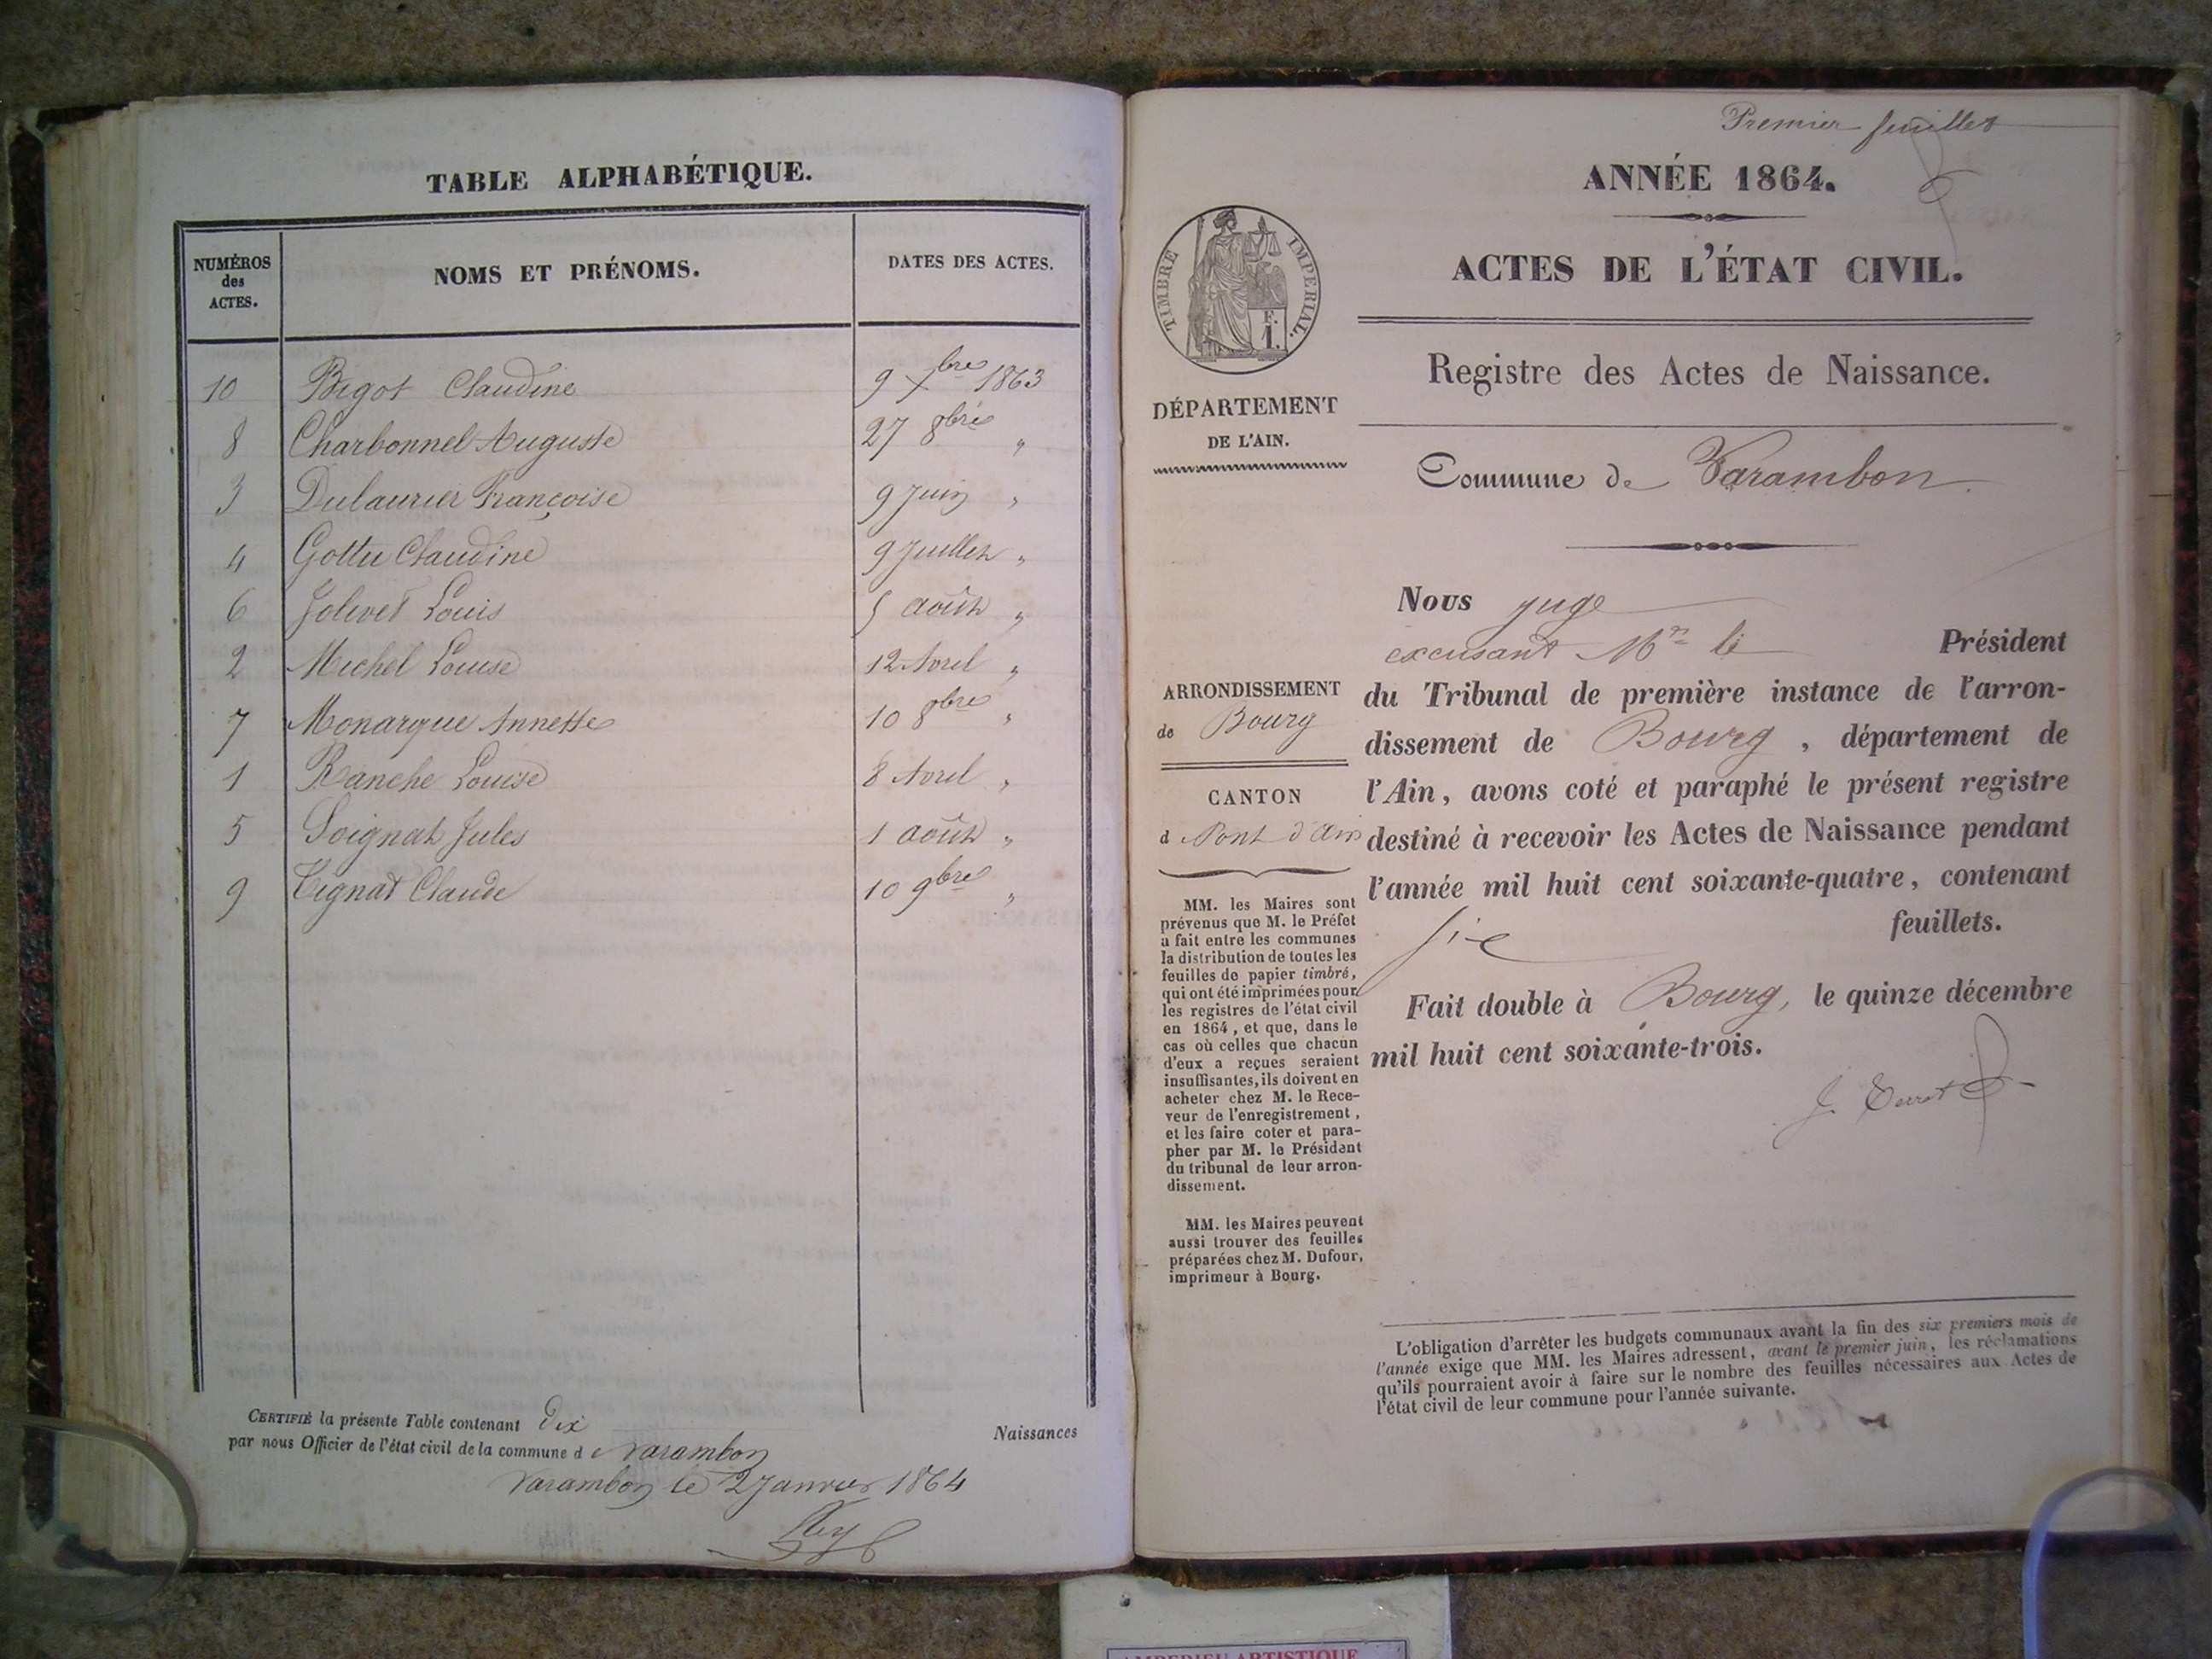 TABLE ALPHABÉTIQUE.
NUMÉROS
des
ACTES.
NOMS ET PRÉNOMS.
DATES DES ACTES.
10 Bigot Claudine 9 Xbre 1863
8 Charbonnel Auguste 27 8bre "
3 Dulaurier Françoise 9 Juin "
4 Gottu Claudine 9 Juillet "
6 Jolivet Louis 5 août "
2 Michel Louise 12 Avril "
7 Monarque Annette 10 8bre "
1 Ranche Louise 8 Avril "
5 Soignat Jules 1 août "
9 Tignat Claude 10 9bre "
CERTIFIÉ la présente Table contenant dix Naissances
par nous Officier de l'état civil de la commune de Varambon
Varambon le 2 Janvier 1864
Premier feuillet
ANNÉE 1864.
TIMBRE IMPERIAL.
F.
1.
ACTES DE L'ÉTAT CIVIL.
Registre des Actes de Naissance.
DÉPARTEMENT
DE L'AIN.
Commune de Varambon.
ARRONDISSEMENT
de Bourg
CANTON
d Pont d'Ain
MM. les Maires sont
prévenus que M. le Préfet
a fait entre les communes
la distribution de toutes les
feuilles de papier timbré,
qui ont été imprimées pour
les registres de l'état civil
en 1864, et que, dans le
cas où celles que chacun
d'eux a reçues seraient
insuffisantes, ils doivent en
acheter chez M. le Rece-
veur de l'enregistrement,
et les faire coter et para-
pher par M. le Président
du tribunal de leur arron-
dissement.
MM. les Maires peuvent
aussi trouver des feuilles
préparées chez M. Dufour,
imprimeur à Bourg.
Nous juge
excusant Mr le Président
du Tribunal de première instance de l'arron-
dissement de Bourg, département de
l'Ain, avons coté et paraphé le présent registre
destiné à recevoir les Actes de Naissance pendant
l'année mil huit cent soixante-quatre, contenant
six feuillets.
Fait double à Bourg, le quinze décembre
mil huit cent soixante-trois.
L'obligation d'arrêter les budgets communaux avant la fin des six premiers mois de
l'année exige que MM. les Maires adressent, avant le premier juin, les réclamations
qu'ils pourraient avoir à faire sur le nombre des feuilles nécessaires aux Actes de
l'état civil de leur commune pour l'année suivante.
AMBERIEU ARTISTIQUE